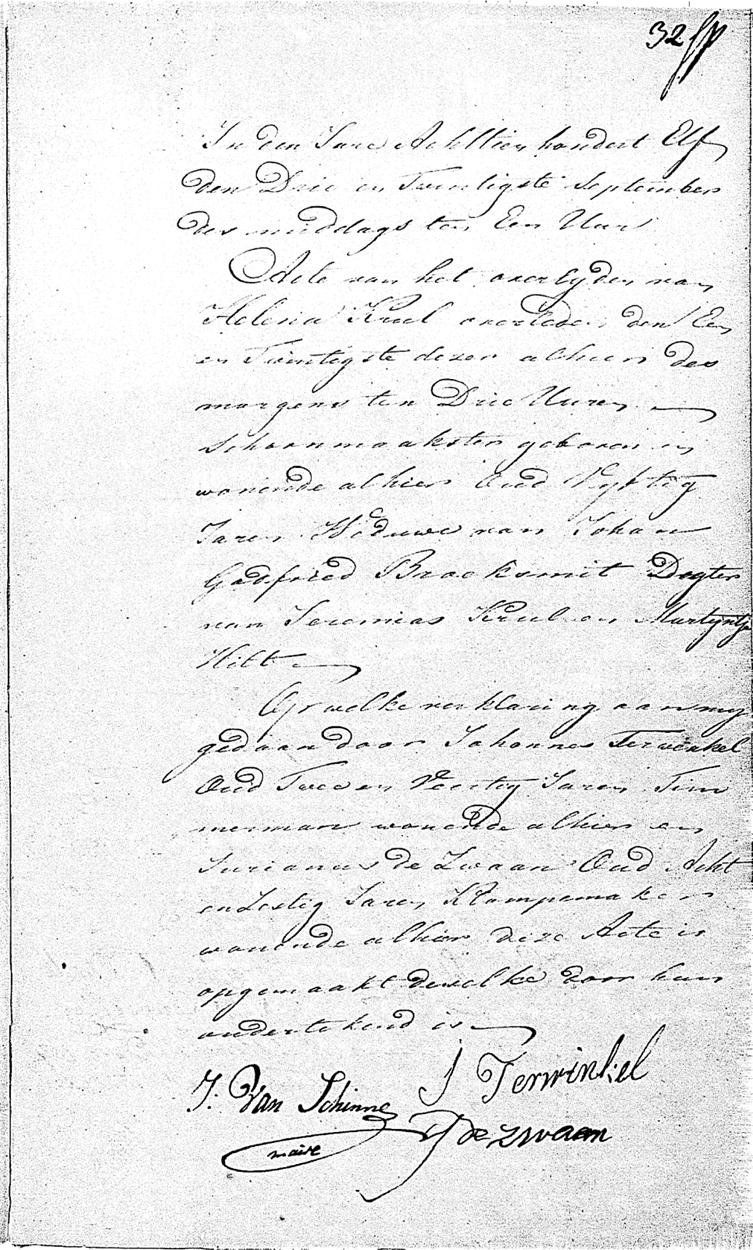 32
In den Jare Achttien hondert Elf
den Drie en Twintigste September
des middags ten Een Uur
Acte van het overlyden van
Helena Krul overleden den Een
en Twintigste dezer alhier des
morgens ten Drie Uuren
Schoonmaakster geboren en
wonende alhier Oud Vyftig
Jaren Weduwe van Johan
Godfried Brocksmit Dogter
van Jeremias Krul en Martyntje
Hitt
Op welke verklaring aan my
gedaan door Johannes Terwinkel
Oud Twee en Veertig Jaren Tim
merman wonende alhier en
Jurianus de Zwaan Oud Acht
en Zestig Jaren Klompemaker
wonende alhier deze Acte is
opgemaakt dewelke door hun
ondertekend is
J Terwinkel
J: Van Schinne
maire
J de zwaan